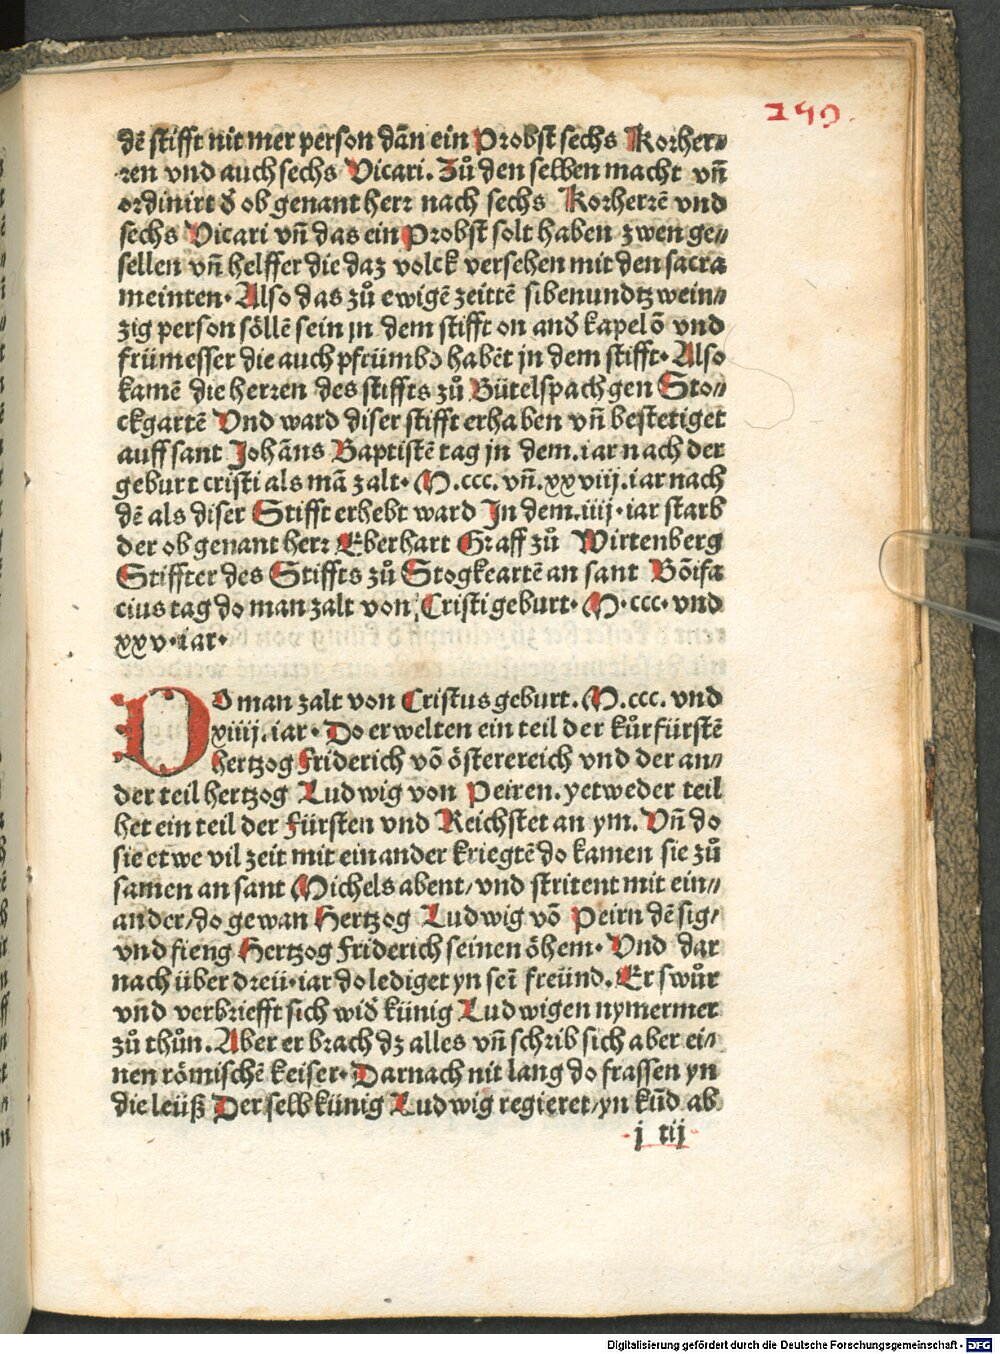 259.
dē stifft nit mer person dān ein Probst sechs Korher⸗
ren vnd auch sechs Vicari. Zů den selben macht vn̄
ordinirt d̄ ob genant herr nach sechs Korherrē vnd
sechs Vicari vn̄ das ein Probst solt haben zwen ge⸗
sellen vn̄ helffer die daz volck versehen mit den sacra
meinten. Also das zů ewigē zeittē sibenundtzwein⸗
zig person söllē sein jn dem stifft on and̄ kapelō vnd
frümesser die auch pfrümbꝛ habēt jn dem stifft. Also
kamē die herren des stiffts zů Bütelspach gen Sto⸗
ckgartē Vnd ward diser stifft erhaben vn̄ bestetiget
auff sant Johāns Baptistē tag jn dem. iar nach der
geburt cristi als mā zalt. M.ccc. vn̄. xxviij. iar nach
dē als diser Stifft erhebt ward Jn dem. iiij. iar starb
der ob genant herr Eberhart Graff zů Wirtenberg
Stiffter des Stiffts zů Stogkeartē an sant Bōifa
cius tag do man zalt von Cristi geburt. M.ccc. vnd
xxv. iar.
DO man zalt von Cristus geburt. M.ccc. vnd
xiiij. iar. Do erwelten ein teil der kůrfürstē
hertzog Friderich vō österereich vnd der an⸗
der teil hertzog Ludwig von Peiren. yetweder teil
het ein teil der fürsten vnd Reichstet an ym. Vn̄ do
sie etwe vil zeit mit ein ander kriegtē do kamen sie zů
samen an sant Michels abent/ vnd stritent mit ein⸗
ander/ do gewan Hertzog Ludwig vō Peirn dē sig/
vnd fieng Hertzog Friderich seinen öhem. Vnd dar
nach über dreü. iar do lediget yn sei̅ freünd. Er swůr
vnd verbriefft sich wid̄ künig Ludwigen nymermer
zů thůn. Aber er brach dz alles vn̄ schrib sich aber ei⸗
nen römischē keiser. Darnach nit lang do frassen yn
die leüß Der selb künig Ludwig regieret/ yn kūd ab
j iij
Digitalisierung gefördert durch die Deutsche Forschungsgemeinschaft - DFG